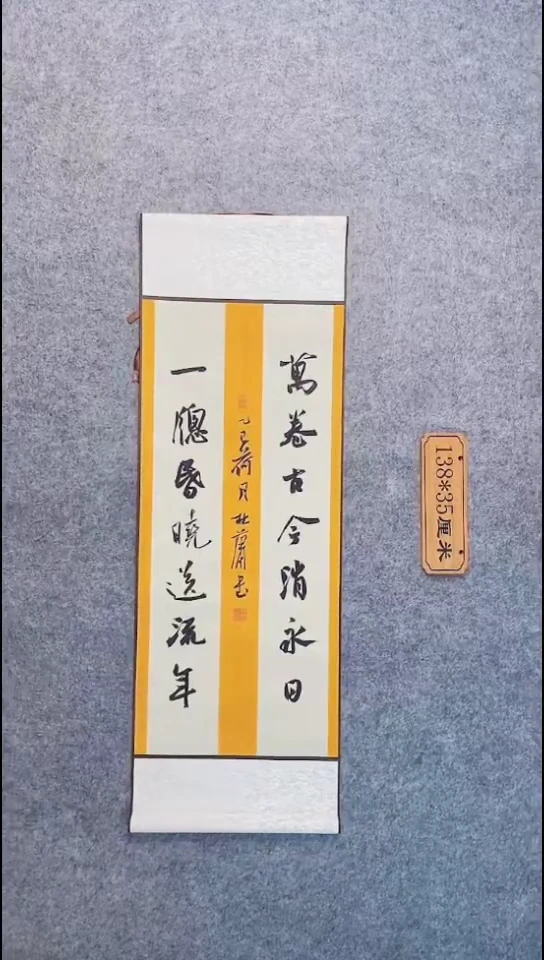 萬卷古今消永日
一牕昏曉送流年
乙巳荷月杜蘭玉
138*35厘米